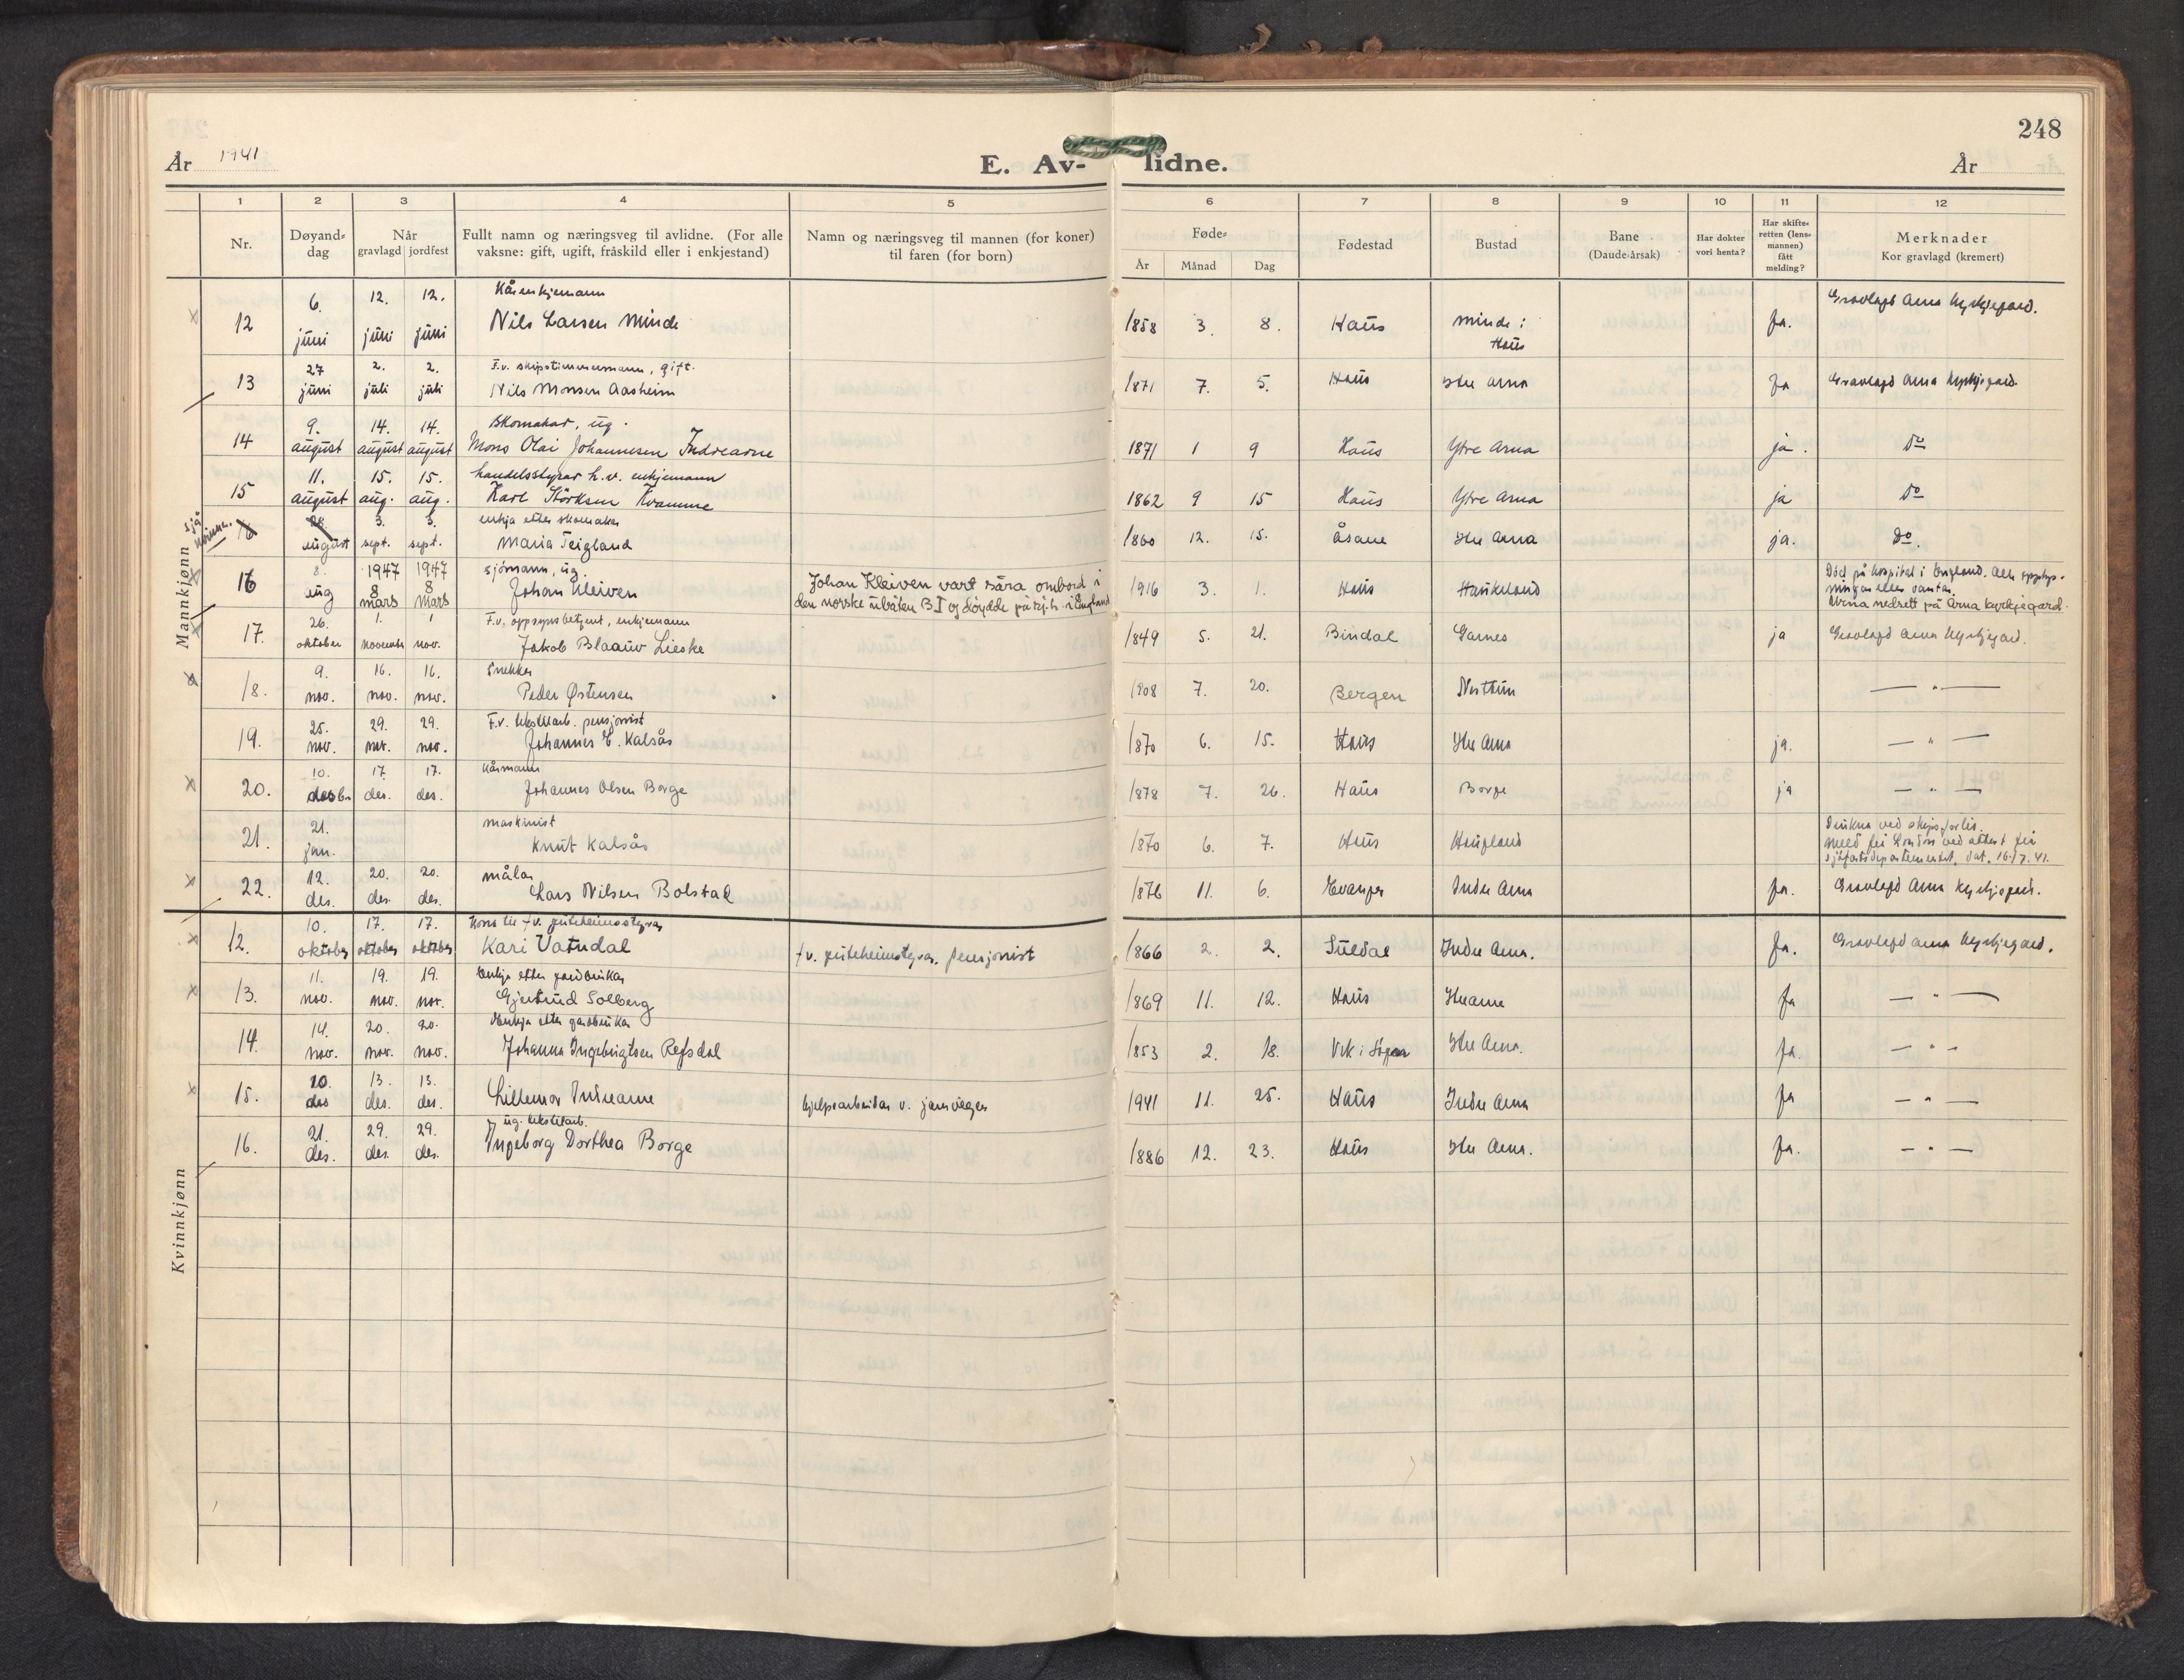 248
År 1941 E. Av- lidne. År
1 2 3 4 5 6 7 8 9 10 11 12
Nr. Døyand-dag Når gravlagd jordfest Fullt namn og næringsveg til avlidne. (For alle vaksne: gift, ugift, fråskild eller i enkjestand) Namn og næringsveg til mannen (for koner) til faren (for born) Føde- År Månad Dag Fødestad Bustad Bane (Daude-årsak) Har dokter vori henta? Har skifte-retten (lens-mannen) fått melding? Merknader Kor gravlagd (kremert)
Mannkjønn
Kårenkjemann
12 6. juni 12. juni 12. juni Nils Larsen Minde 1858 3. 8. Haus Minde i Haus ja. Gravlagd Arna kyrkjegard.
F.v. skipstimmermann, gift.
13 27 juni 2. juli 2. juli Nils Monsen Aasheim 1871 7. 5. Haus Ytre Arna ja Gravlagd Arna kyrkjegard.
Skomakar, ug.
14 9. august 14. august 14. august Mons Olai Johannesen Indrearne 1871 1 9 Haus Ytre Arna ja. Do
handelsstyrar h.v. enkjemann
15 11. august 15. aug. 15. aug. Karl Störksen Kvamme 1862 9 15 Haus Ytre Arna ja Do
sjå
enkja etter skomakar
16 august 3. sept. 3. sept. Maria Teigland 1860 12. 15. Åsane Ytre Arna ja. Do.
sjömann, ug.
16 8. aug 1947 8 mars 1947 8 mars Johan Kleiven Johan Kleiven vart såra ombord i den norske ubåten B I og döydde på sj.h. i England 1916 3. 1. Haus Haukeland Död på hospital i England. Alle upplys-ningar elles vantar. Urna nedsett på Arna kyrkjegard.
F.v. oppsynsbetjent, enkjemann
17. 26. oktober 1. november 1 nov. Jakob Blaauw Lieske 1849 5. 21. Bindal Garnes ja Gravlagd Arna kyrkjegard.
Snekker
18. 9. nov. 16. nov. 16. nov. Peder Østensen 1908 7. 20. Bergen Nesttun — " —
F.v. tekstilarb. pensjonist
19. 25. nov. 29. nov. 29. nov. Johannes E. Kalsås 1870 6. 15. Haus Ytre Arna ja. — " —
Kårmann
20. 10. desbr. 17 des. 17. des. Johannes Olsen Borge 1878 7. 26. Haus Borge ja — " —
maskinist
21. 21. jan. Knut Kalsås 1870 6. 7. Haus Haugland Drukna ved skipsforlis. Meld frå London ved attest frå sjöfartsdepartementet, dat. 16/7. 41.
målar
22. 12. des. 20. des. 20. des. Lars Nilsen Bolstad 1876 11. 6. Evanger Indre Arna ja. Gravlagd Arna kyrkjegard.
Kvinnkjønn
Kona til f.v. guteheimsstyrar
12. 10. oktober 17. oktober 17. oktober Kari Vatndal f.v. guteheimstyrar, pensjonist 1866 2. 2. Suldal Indre Arna. ja. Gravlagd Arna kyrkjegard.
Enkja etter gardbrukar
13. 11. nov. 19. nov. 19. nov. Gjertrud Solberg 1869 11. 12. Haus Ytrearne ja — " —
Enkja etter gardbrukar
14. 14. nov. 20. nov. 20. nov. Johanna Ingebrigtsen Refsdal 1853 2. 18. Vik i Sogn Ytre Arna. ja. — " —
15. 10. des 13. des. 13. des. Lillemor Indrearne hjelpearbeidar v. jarnvegen 1941 11. 25. Haus Indre Arna ja — " —
ug. tekstilarb.
16. 21. des. 29. des. 29. des. Ingeborg Dorthea Borge 1886 12. 23. Haus Ytre Arna. ja. — " —